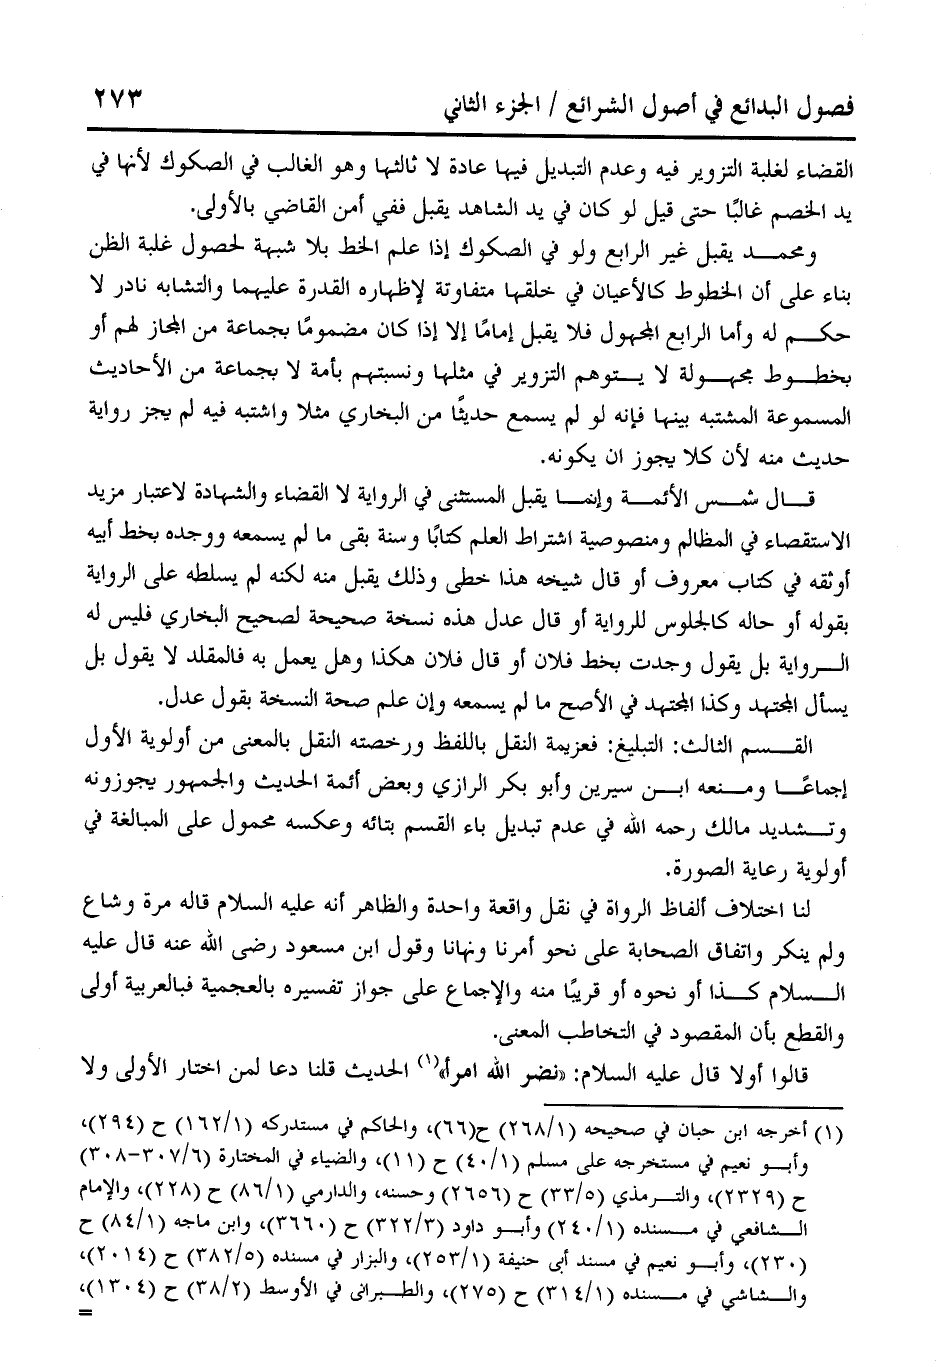 فصول البدائع في أصول الشرائع / الجزء الثاني ٢٧٣
القضاء لغلبة التزوير فيه وعدم التبديل فيها عادة لا ثالثها وهو الغالب في الصكوك لأنها في
يد الخصم غالبًا حتى قيل لو كان في يد الشاهد يقبل ففي أمن القاضي بالأولى.
ومحمد يقبل غير الرابع ولو في الصكوك إذا علم الخط بلا شبهة لحصول غلبة الظن
بناء على أن الخطوط كالأعيان في خلقها متفاوتة لإظهاره القدرة عليهما والتشابه نادر لا
حكم له وأما الرابع المجهول فلا يقبل إمامًا إلا إذا كان مضمومًا بجماعة من المجاز لهم أو
بخطوط مجهولة لا يتوهم التزوير في مثلها ونسبتهم بأمة لا بجماعة من الأحاديث
المسموعة المشتبه بينها فإنه لو لم يسمع حديثًا من البخاري مثلا واشتبه فيه لم يجز رواية
حديث منه لأن كلا يجوز ان يكونه.
قال شمس الأئمة وإنما يقبل المستثنى في الرواية لا القضاء والشهادة لاعتبار مزيد
الاستقصاء في المظالم ومنصوصية اشتراط العلم كتابًا وسنة بقى ما لم يسمعه ووجده بخط أبيه
أوثقه في كتاب معروف أو قال شيخه هذا خطى وذلك يقبل منه لكنه لم يسلطه على الرواية
بقوله أو حاله كالجلوس للرواية أو قال عدل هذه نسخة صحيحة لصحيح البخاري فليس له
الرواية بل يقول وجدت بخط فلان أو قال فلان هكذا وهل يعمل به فالمقلد لا يقول بل
يسأل المجتهد وكذا المجتهد في الأصح ما لم يسمعه وإن علم صحة النسخة بقول عدل.
القسم الثالث: التبليغ: فعزيمة النقل باللفظ ورخصته النقل بالمعنى من أولوية الأول
إجماعًا ومنعه ابن سيرين وأبو بكر الرازي وبعض أئمة الحديث والجمهور يجوزونه
وتشديد مالك رحمه الله في عدم تبديل باء القسم بتائه وعكسه محمول على المبالغة في
أولوية رعاية الصورة.
لنا اختلاف ألفاظ الرواة في نقل واقعة واحدة والظاهر أنه عليه السلام قاله مرة وشاع
ولم ينكر واتفاق الصحابة على نحو أمرنا ونهانا وقول ابن مسعود رضى الله عنه قال عليه
السلام كذا أو نحوه أو قريبًا منه والإجماع على جواز تفسيره بالعجمية فبالعربية أولى
والقطع بأن المقصود في التخاطب المعنى.
قالوا أولا قال عليه السلام: «نضر الله امرأ»(١) الحديث قلنا دعا لمن اختار الأولى ولا
(١) أخرجه ابن حبان في صحيحه (٢٦٨/١) ح(٦٦)، والحاكم في مستدركه (١٦٢/١) ح (٢٩٤)،
وأبو نعيم في مستخرجه على مسلم (٤٠/١) ح (١١)، والضياء في المختارة (٣٠٧/٦-٣٠٨)
ح (٢٣٢٩)، والترمذي (٣٣/٥) ح (٢٦٥٦) وحسنه، والدارمي (٨٦/١) ح (٢٢٨)، والإمام
الشافعي في مسنده (٢٤٠/١) وأبو داود (٣٢٢/٣) ح (٣٦٦٠)، وابن ماجه (٨٤/١) ح
(٢٣٠)، وأبو نعيم في مسند أبى حنيفة (٢٥٣/١)، والبزار في مسنده (٣٨٢/٥) ح (٢٠١٤)،
والشاشي في مسنده (٣١٤/١) ح (٢٧٥)، والطبرانى في الأوسط (٣٨/٢) ح (١٣٠٤)،
=